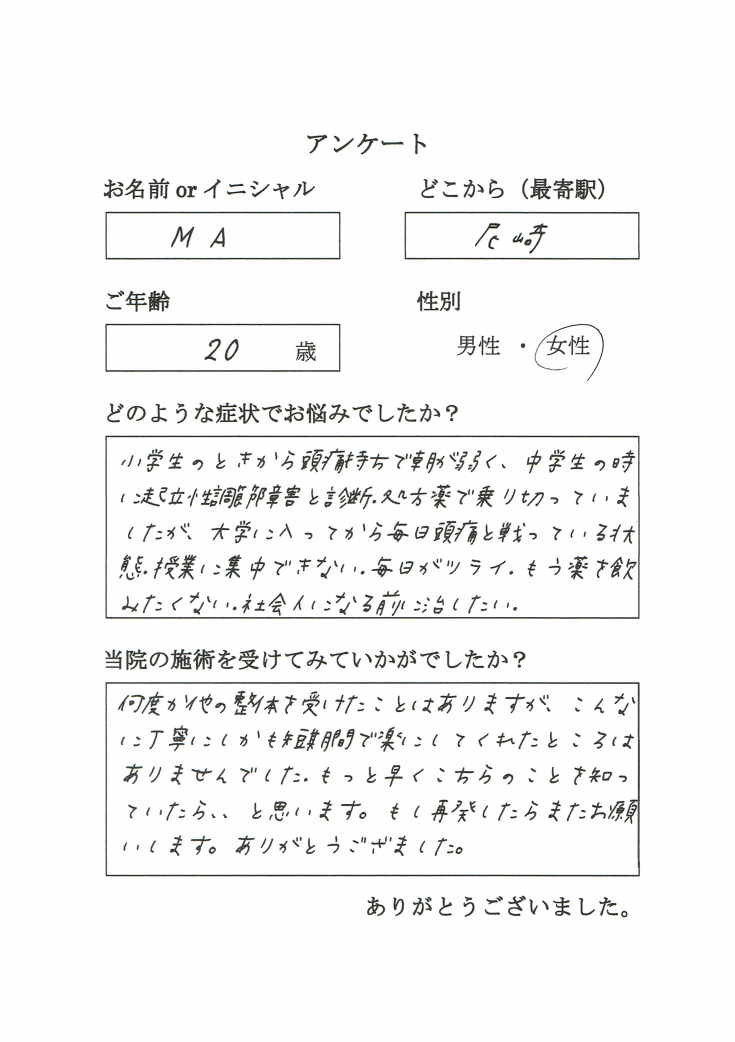 アンケート
お名前 or イニシャル　どこから（最寄駅）
M A　尼崎
ご年齢　性別
20 歳　男性 ・ 女性
どのような症状でお悩みでしたか？
小学生のときから頭痛持ちで朝が弱く、中学生の時
に起立性調節障害と診断.処方薬で乗り切っていま
したが、大学に入ってから毎日頭痛と戦っている状
態.授業に集中できない.毎日がツライ.もう薬を飲
みたくない.社会人になる前に治したい.
当院の施術を受けてみていかがでしたか？
何度か他の整体を受けたことはありますが、こんな
に丁寧にしかも短期間で楽にしてくれたところは
ありませんでした.もっと早くこちらのことを知っ
ていたら、、と思います。もし再発したらまたお願
いします。ありがとうござました。
ありがとうございました。